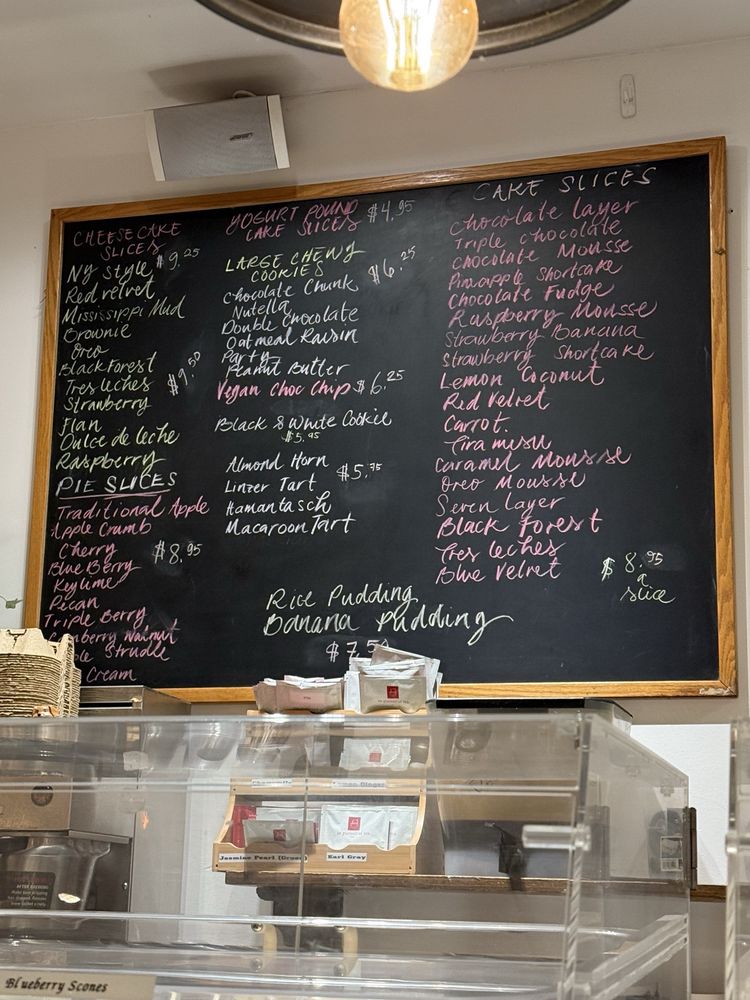 CHEESECAKE
SLICES
NY style $9.25
Red velvet
Mississippi Mud
Brownie
Oreo
Black Forest
Tres leches $9.50
Strawberry
Flan
Dulce de leche
Raspberry
PIE SLICES
Traditional Apple
Apple Crumb
Cherry
Blue Berry $8.95
Keylime
Pecan
Triple Berry
Walnut
Strudle
Cream
YOGURT POUND
CAKE SLICES $4.95
LARGE CHEWY
COOKIES $6.25
Chocolate Chunk
Nutella
Double Chocolate
Oatmeal Raisin
Party
Peanut Butter
Vegan Choc Chip $6.25
Black & White Cookie
$5.95
Almond Horn
Linzer Tart $5.75
Hamantasch
Macaroon Tart
Rice Pudding
Banana Pudding
$7.50
CAKE SLICES
Chocolate layer
Triple chocolate
Chocolate Mousse
Pineapple Shortcake
Chocolate Fudge
Raspberry Mousse
Strawberry Banana
Strawberry Shortcake
Lemon Coconut
Red Velvet
Carrot.
Tiramisu
Caramel Mousse
Oreo Mousse
Seven Layer
Black Forest
Tres leches
Blue Velvet
$8.95
a
slice
Jasmine Pearl (Green)
Earl Gray
AFTER BREWING
Blueberry Scones